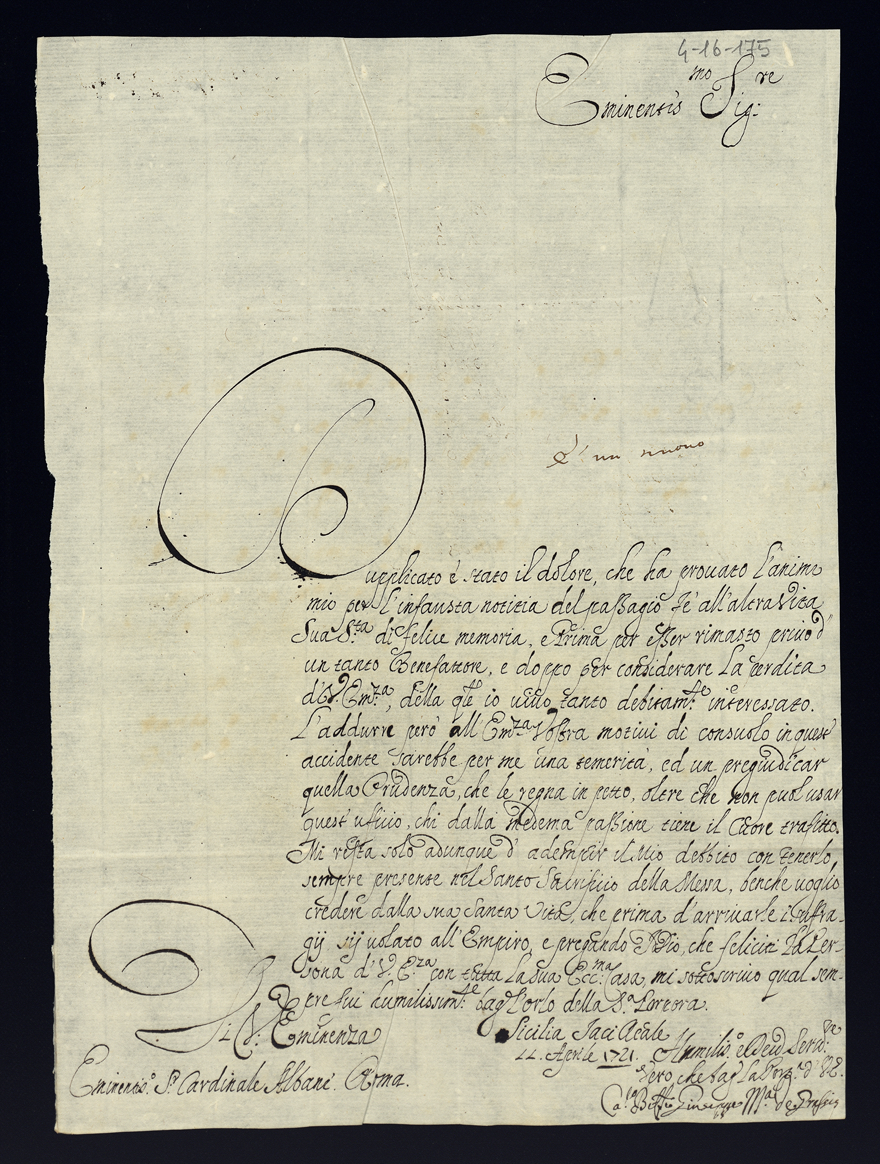 4-16-175
Eminentis.mo Sig:re
È un nuovo
Dupplicato è stato il dolore, che ha prouato l'animo
mio per l'infausta notitia del passagio fè all'altra Vita
Sua S.ta di felice memoria, e Prima per esser rimasto priuo d'
un tanto Benefattore, e doppo per considerare la perdita
di V. Em.za, della q.le io uiuo tanto debitam.te interessato.
L'addurre però all'Em.za Vostra motiui di consuolo in quest'
accidente sarebbe per me una temerità, ed un pregiudicar
quella Prudenza, che le regna in petto, oltre che non puol usar
quest'uffitio, chi dalla medema passione tiene il Cuore trafitto.
Mi resta solo adunque d'adempir il Mio debbito con tenerlo
sempre presente nel Santo Sacrificio della Messa, benche uoglio
credere dalla sua Santa Vita, che prima d'arriuarle i suffra-
gij sij uolato all'Empiro, e pregando Idio, che feliciti la Per-
sona di V. E.za con tutta la sua Ecc.ma Casa, mi sottoscriuo qual sem-
pre fui humilissim.te bag. l'orlo della S.a Porpora.
Di V. Eminenza
Sicilia Jaci Reale
22. Aprile 1721.
Eminentis.o S.r Cardinale Albani. Roma.
Humilis.o e Deu.o Seru.re
Vero che bag. la Porp.a di V.E.
Giuseppe M.a de